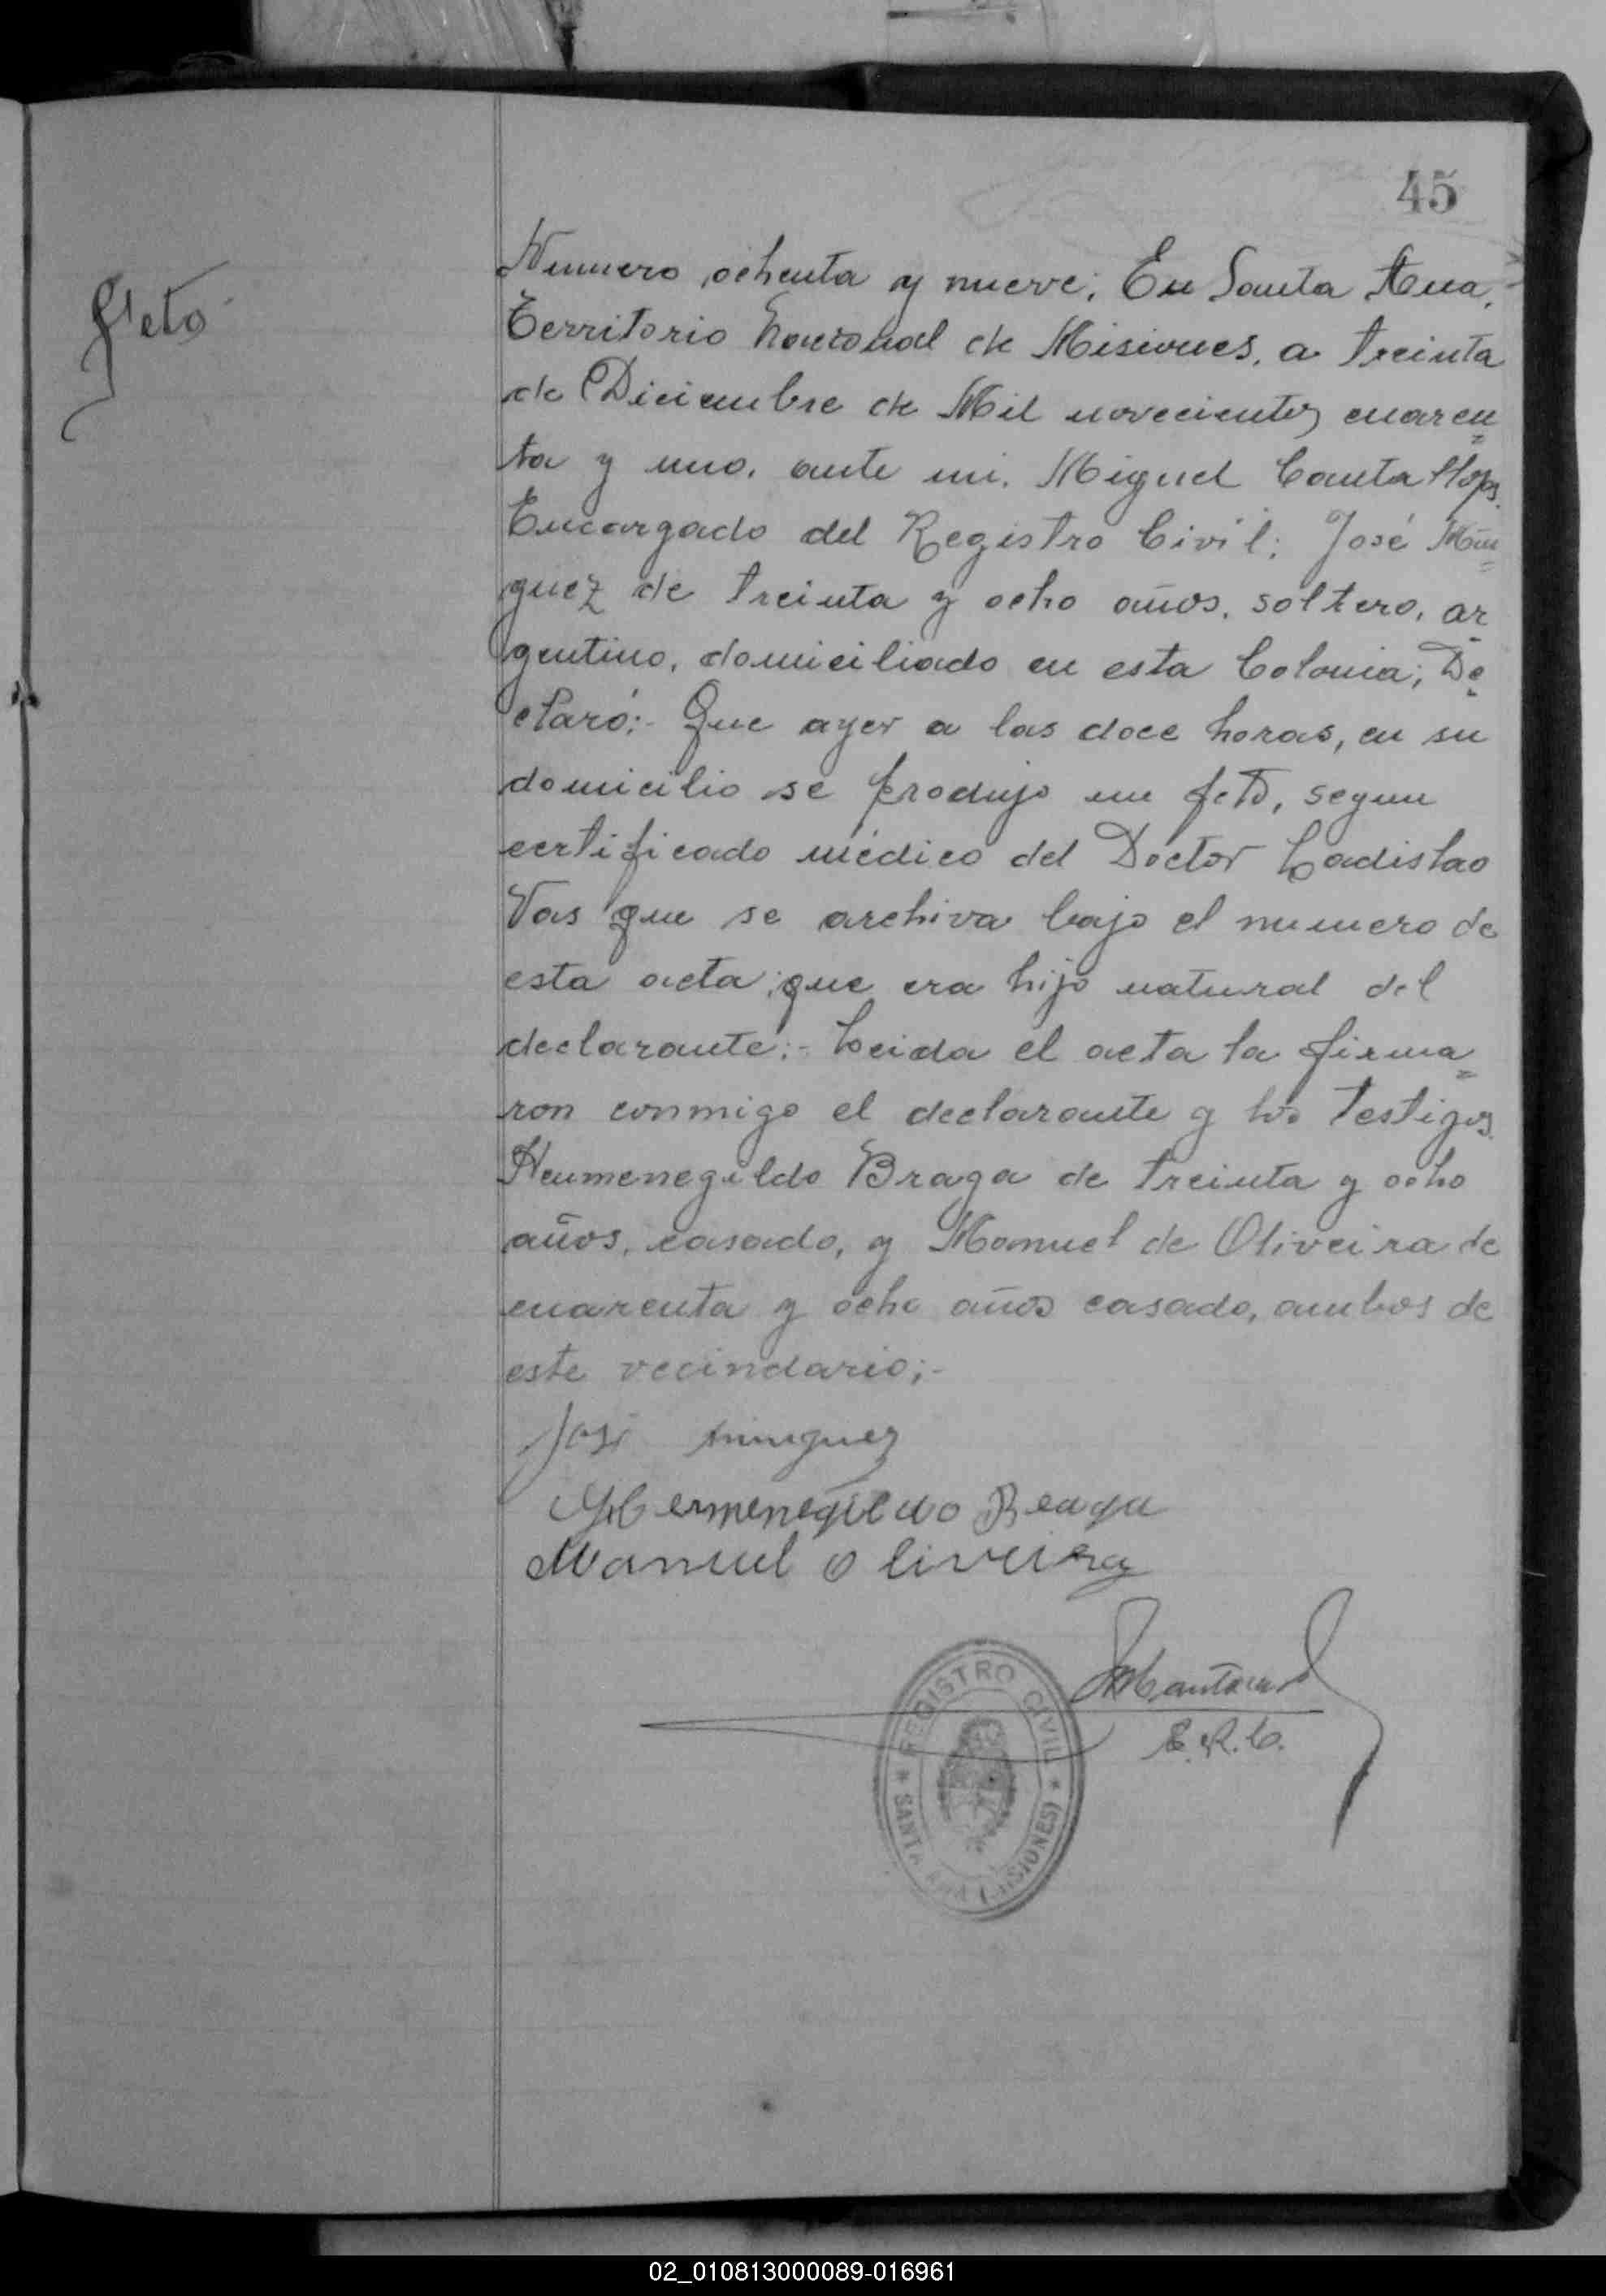 45
Feto
Numero ochenta y nueve; En Santa Ana,
Territorio Nacional de Misiones, a treinta
de Diciembre de Mil novecientos cuaren=
ta y uno, ante mi, Miguel Cantallops
Encargado del Registro Civil; José Min=
guez de treinta y ocho años, soltero, ar
gentino, domiciliado en esta Colonia; De
claró:- Que ayer a las doce horas, en su
domicilio se produjo un feto, segun
certificado médico del Doctor Ladislao
Vas que se archiva bajo el numero de
esta acta; que era hijo natural del
declarante:- Leida el acta la firma=
ron conmigo el declarante y los testigos
Heumenegildo Braga de treinta y ocho
años, casado, y Manuel de Oliveira de
cuarenta y ocho años casado, ambos de
este vecindario;-
José minguez
Hermenegildo Braga
Manuel Oliveira
E.R.C.
REGISTRO CIVIL
* SANTA ANA (MISIONES) *
02_010813000089-016961